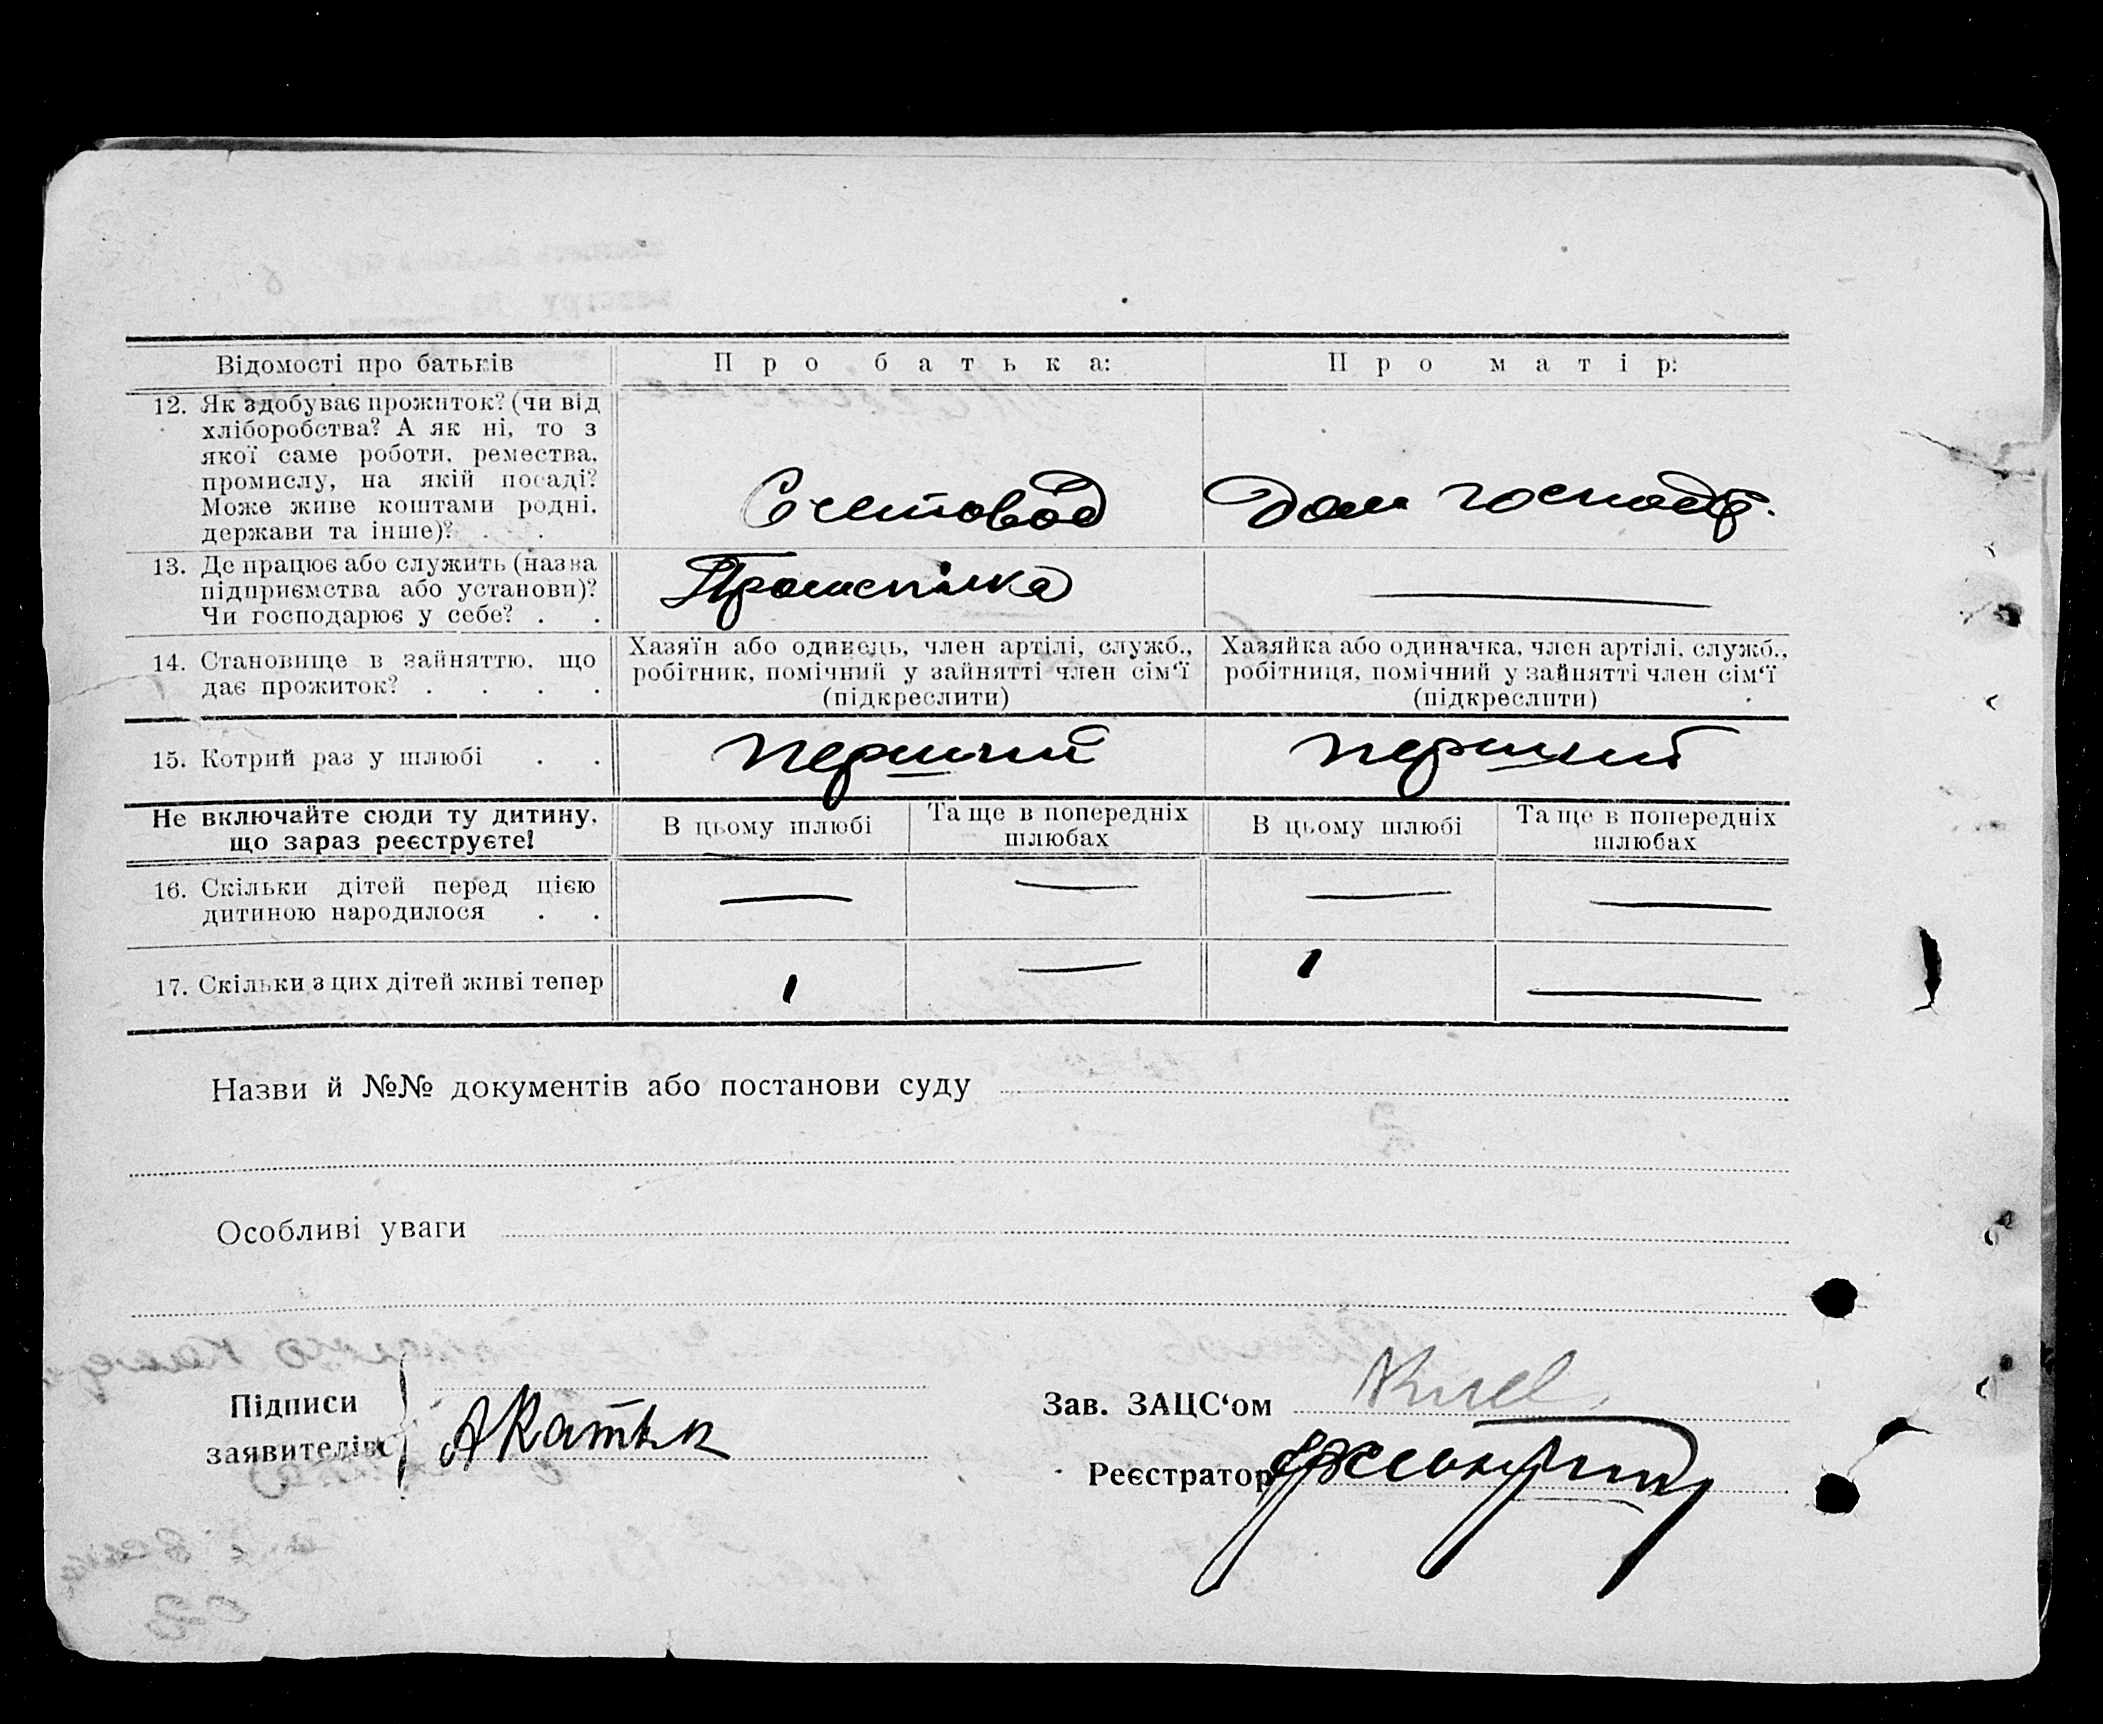 Відомості про батьків
Про батька:
Про матір:
12. Як здобуває прожиток? (чи від
хліборобства? А як ні, то з
якої саме роботи, ремества,
промислу, на якій посаді?
Може живе коштами родні,
держави та інше)? . .
Счетовод
Дом господр.
13. Де працює або служить (назва
підприємства або установи)?
Чи господарює у себе? . .
Промспілка
14. Становище в зайняттю, що
дає прожиток? . . . .
Хазяїн або одинець, член артілі, служб.,
робітник, помічний у зайнятті член сім‘ї
(підкреслити)
Хазяйка або одиначка, член артілі, служб.,
робітниця, помічний у зайнятті член сім‘ї
(підкреслити)
15. Котрий раз у шлюбі . .
перший
перший
Не включайте сюди ту дитину,
що зараз реєструєте!
В цьому шлюбі
Та ще в попередніх
шлюбах
В цьому шлюбі
Та ще в попередніх
шлюбах
16. Скільки дітей перед цією
дитиною народилося . .
— — — —
17. Скільки з цих дітей живі тепер
1 — 1 —
Назви й №№ документів або постанови суду
Особливі уваги
Підписи
заявителів
Зав. ЗАЦС‘ом
Реєстратор